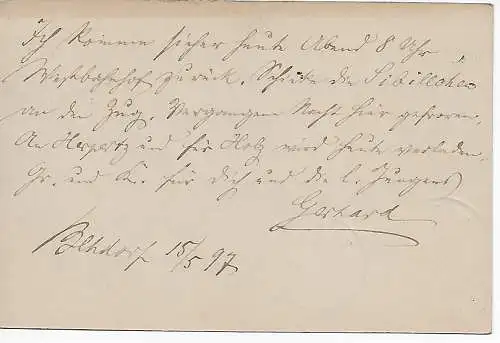 Ich komme sicher heute Abend 8 Uhr
Westbahnhof zurück. Schicke die
an den Zug. Vergangene Nacht hier gefroren.
An und für Holz wird heute verladen.
Gr. und K. für Dich und die l. Jungens
Gerhard
15/5 97